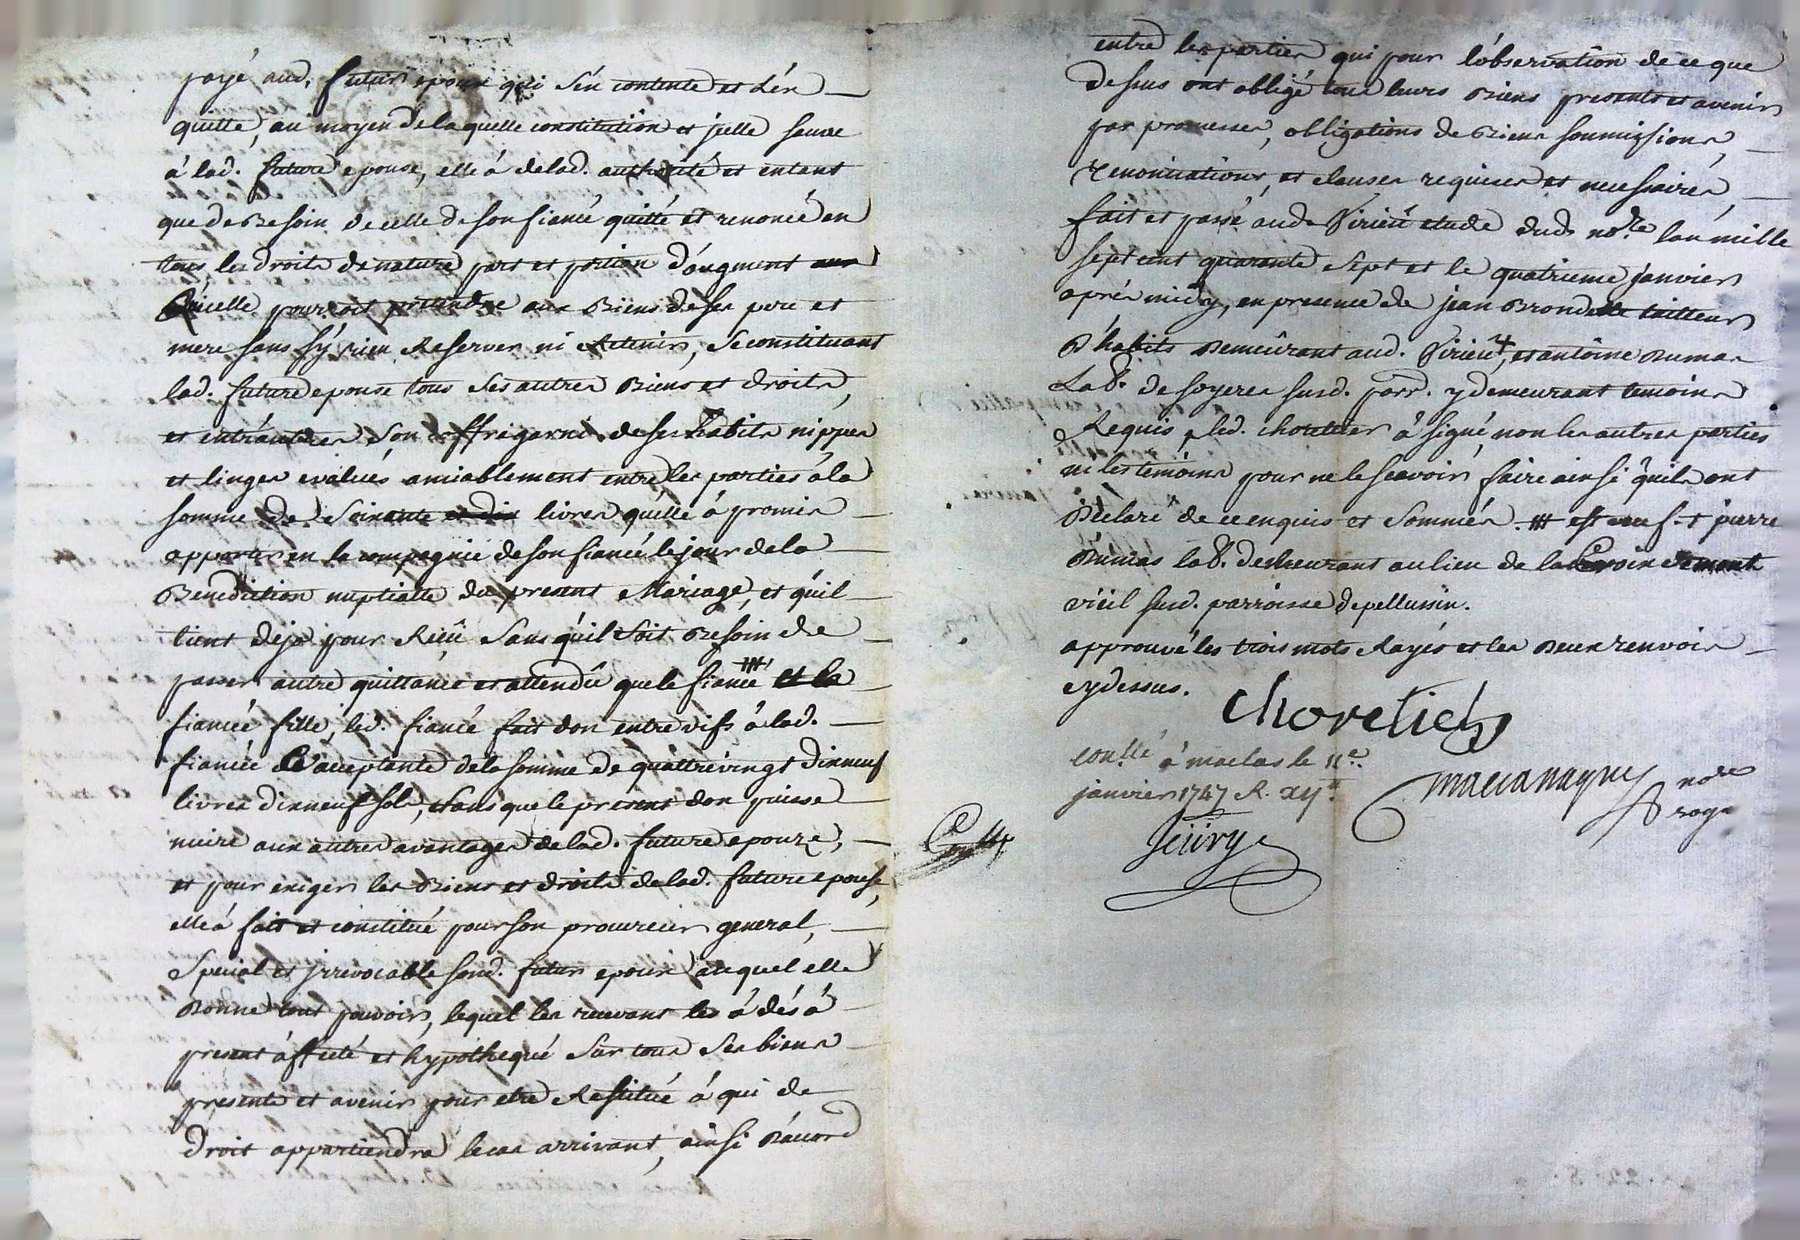 payé aud. futur epoux qui s'en contente et l'en
quitte, au moyen de laquelle constitution et jcelle sauve
à lad. future epouse, elle à de lad. authorité et entant
que de Besoin de celle de son fiancé quitté et renoncé en
tous les droits de nature part et portion d'augment
qu'icelle pourroit pretendre aux Biens de ses pere et
mere sans s'y rien Reserver ni Retenir, se constituant
lad. future epouse tous ses autres Biens et droits,
et entr'autres son coffre garni de ses habits nippes
et linges evalués amiablement entre les parties à la
somme de soixante et dix livres qu'elle à promis
apporter en la compagnie de son fiancé le jour de la
Benediction nuptialle du present Mariage, et qu'il
tient deja pour Reçû sans qu'il soit Besoin de
passer autre quittance et attendû que le fiancé ## et la
fiancée fille, led. fiancé fait don entre vifs à lad.
fiancée acceptante de la somme de quattrevingt dixneuf
livres dixneuf sols, sans que le present don puisse
nuire aux autres avantages de lad. future epouze,
et pour exiger les Biens et droits de lad. future epouse,
elle à fait et constitué pour son procureur general,
special et jrrevocable sond. futur epoux auquel elle
Donne tout pouvoir, lequel les recevant les à dés à
present affecté et hypothequé sur tous ses biens
presents et avenir pour etre Restitué à qui de
droit appartiendra le cas arrivant, ainsi d'accord
entre les parties qui pour l'observation de ce que
dessus ont obligé tous leurs Biens presents et avenir
par promesses, obligations de Biens soumissions,
renonciations, et clauses requises et necessaires,
fait et passé aud. Virieu etude dud. no.re l'an mille
sept cent quarante sept et le quatrieme janvier
aprés midy, en presence de jean Bronde tailleur
D'habits Demeurant aud. Virieu +, et antoine Dumas
Lab.r de soyeres susd. parr. y demeurant temoins
Requis, led. choretier à signé non les autres parties
ni les temoins pour ne le scavoir faire ainsi qu'ils ont
Declaré de ce enquis et sommés. ## est veuf + pierre
Dumas lab.r demeurant au lieu de la
vieil susd. parroisse de pellussin.
approuvé les trois mots Rayés et les Deux renvois
cydessus.
choretier
con.llé à maclas le 11.e
janvier 1747 R. xij s.
Marcanagny
no.re
roy.